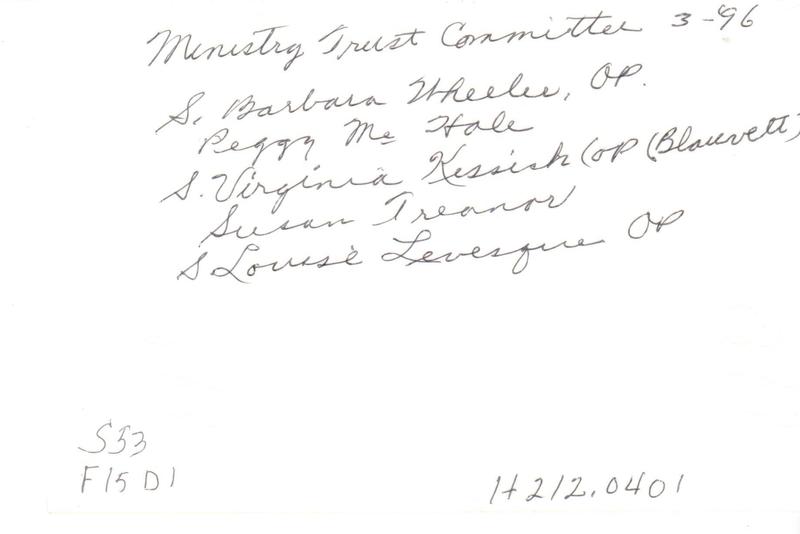 Ministry Trust Committee 3-96
S. Barbara Wheeler, OP.
Peggy Mc Hale
S. Virginia Kessish (OP (Blauvelt)
Susan Treanor
S Louise Levesque OP
S53
F15 D1
H212.0401